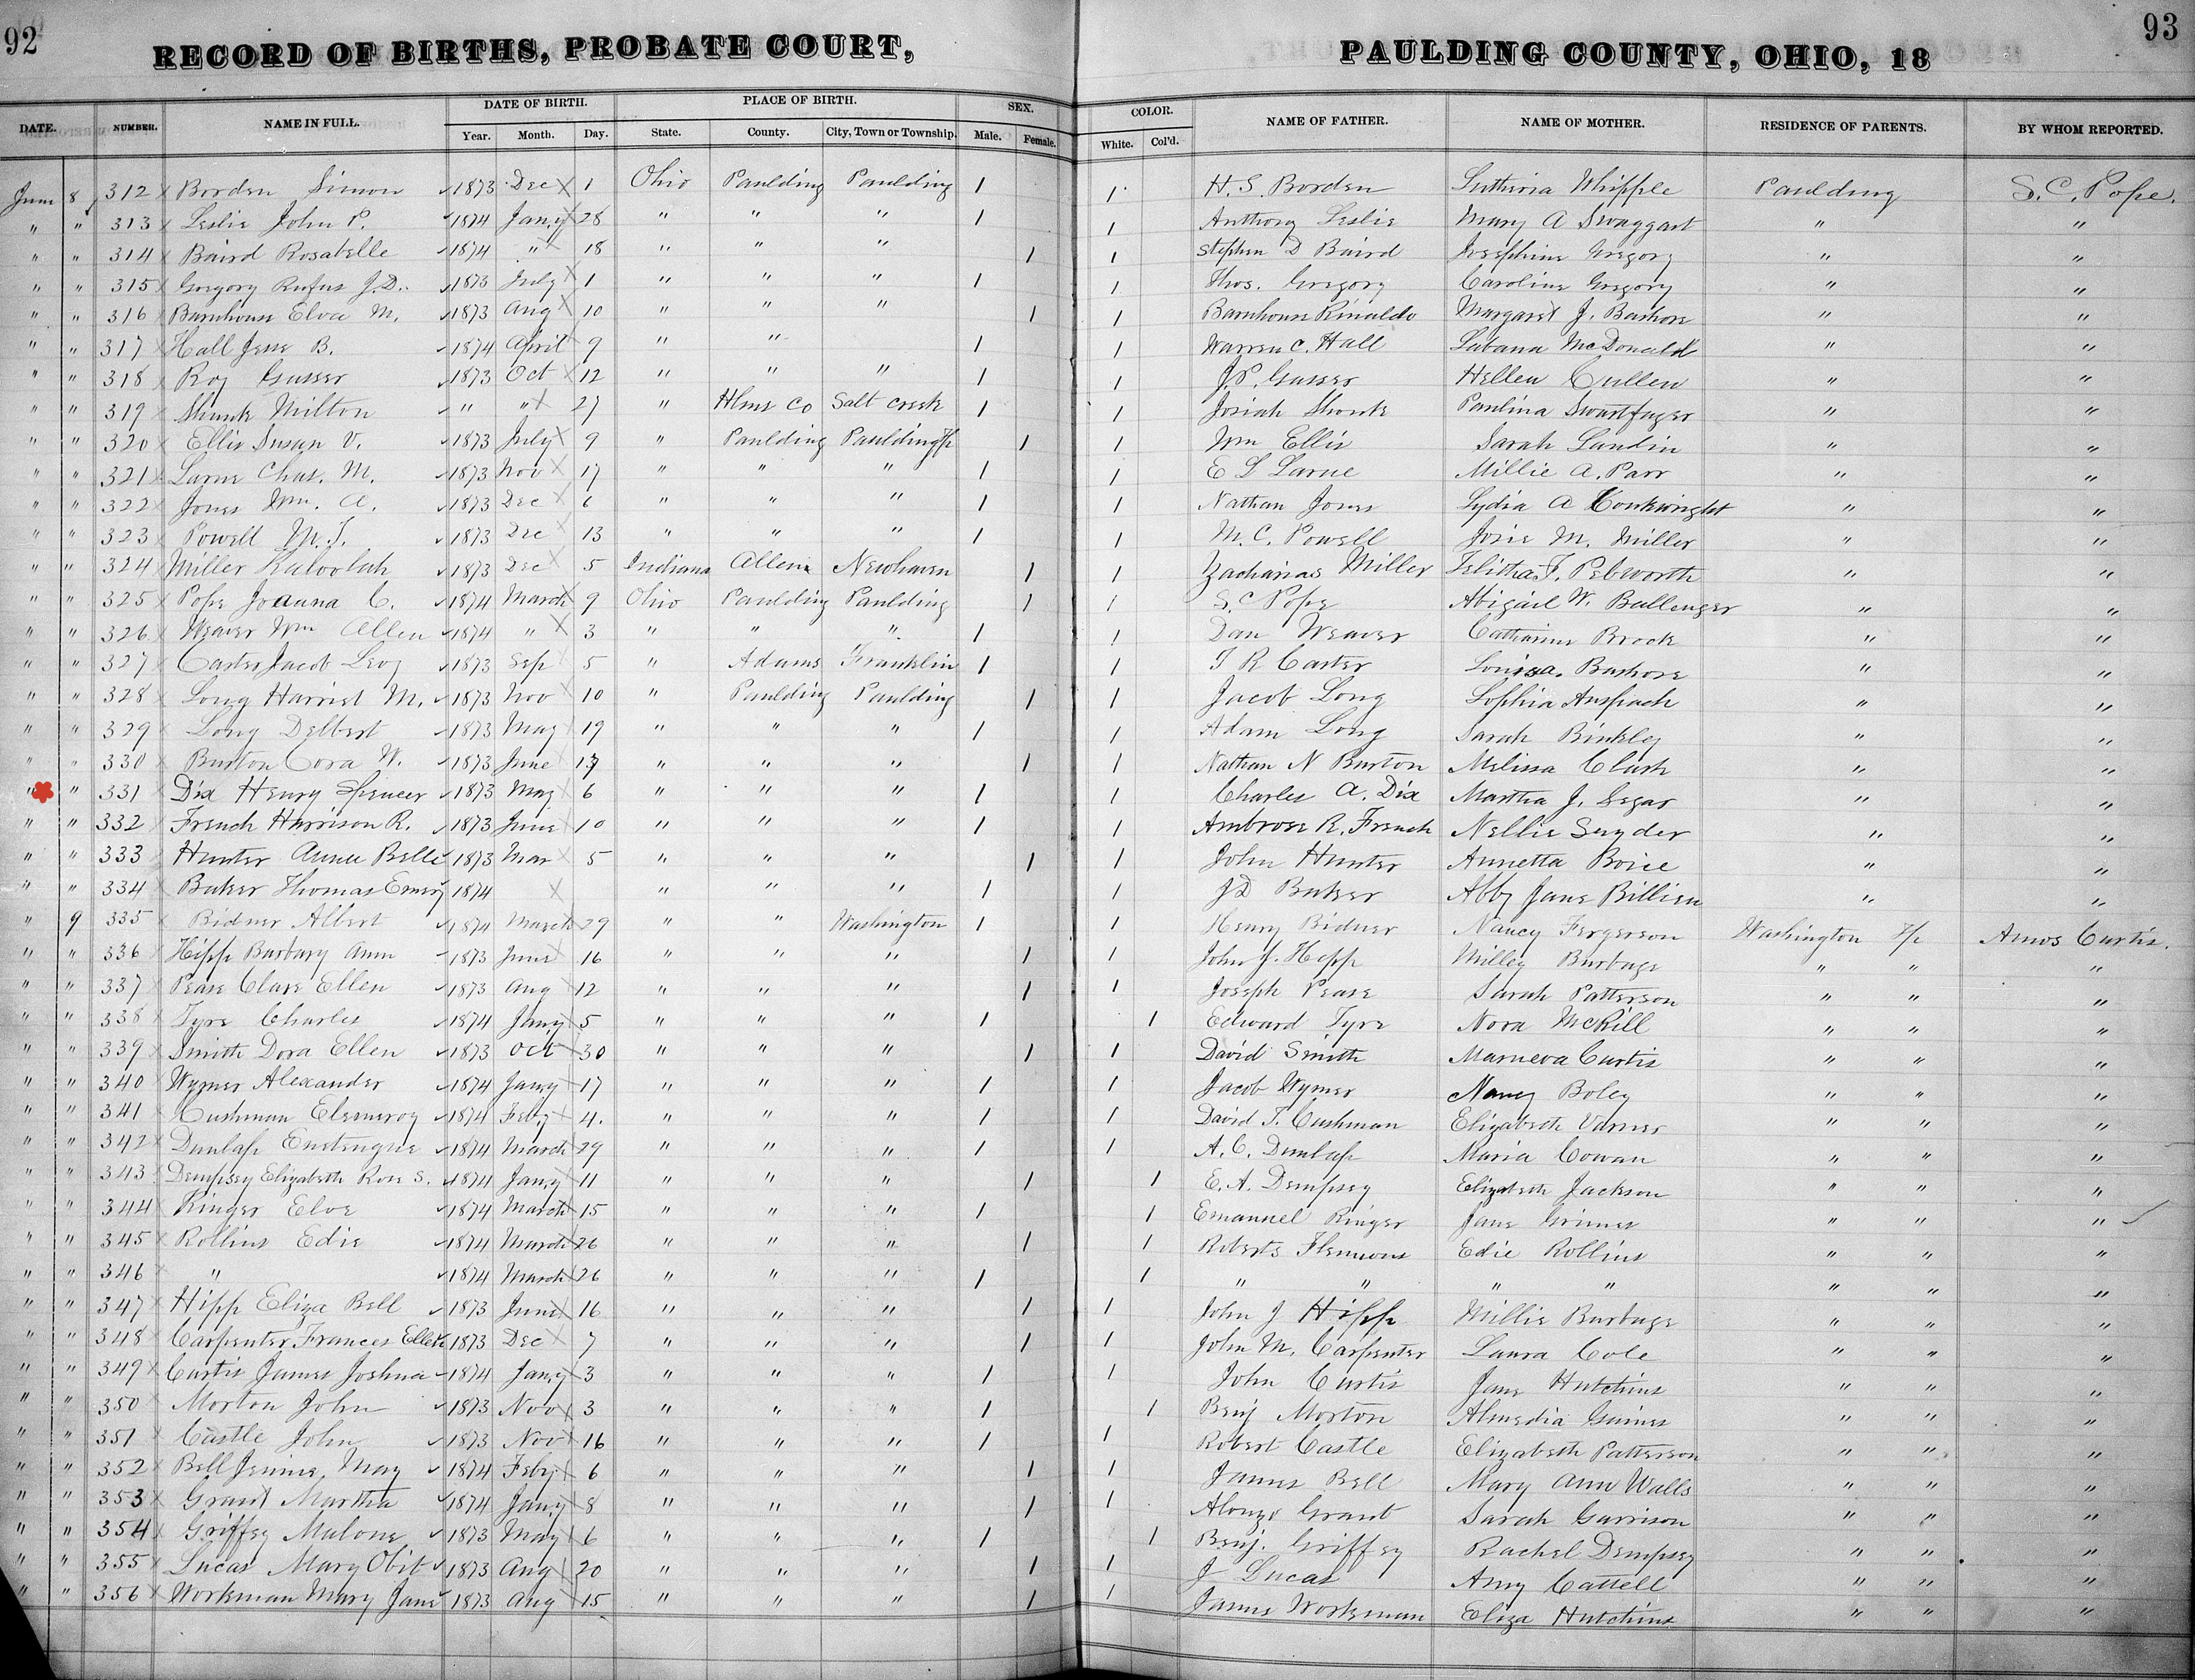 92
RECORD OF BIRTHS, PROBATE COURT, PAULDING COUNTY, OHIO, 18
93
DATE. NUMBER. NAME IN FULL. DATE OF BIRTH. Year. Month. Day. PLACE OF BIRTH. State. County. City, Town or Township. SEX. Male. Female. COLOR. White. Col'd. NAME OF FATHER. NAME OF MOTHER. RESIDENCE OF PARENTS. BY WHOM REPORTED.
June 8 312 x Borden Simon 1873 Dec 1 Ohio Paulding Paulding 1 1 H. S. Borden Whipple Paulding S. C. Pope.
" " 313 x Leslie John P. 1874 Jany 28 " " " 1 1 Anthony Leslie Mary A Swaggart " "
" " 314 x Baird Rosabelle 1874 " 18 " " " 1 1 Stephen D Baird Josephine Gregory " "
" " 315 x Gregory Rufus J.D. 1873 July 1 " " " 1 1 Thos. Gregory Caroline Gregory " "
" " 316 x Barnhouse Elva M. 1873 Aug 10 " " " 1 1 Barnhouse Rinaldo Margaret J. Bashore " "
" " 317 x Hall Jesse B. 1874 April 9 " " 1 1 Warren C. Hall McDonald " "
" " 318 x Roy Gusser 1873 Oct 12 " " " 1 1 J.P. Gusser Hellen Cullen " "
" " 319 x Shunk Milton " " 27 " Hlms Co Salt creek 1 1 Josiah Shunk Paulina " "
" " 320 x Ellis Susan V. 1873 July 9 " Paulding Paulding Tp 1 1 Wm Ellis Sarah Lundin " "
" " 321 x Larue Chas. M. 1873 Nov 17 " " " 1 1 E L Larue Millie A. Parr " "
" " 322 x Jones Wm. A. 1873 Dec 6 " " " 1 1 Nathan Jones Lydia A Conkwright " "
" " 323 x Powell M. J. 1873 Dec 13 " " " 1 1 M. C. Powell Josie M. Miller " "
" " 324 x Miller 1873 Dec 5 Indiana Allen Newhaven 1 1 Zacharias Miller Telitha F. Pebworth " "
" " 325 x Pope Joanna C. 1874 March 9 Ohio Paulding Paulding 1 1 S. C Pope Abigail W. Ballenger " "
" " 326 x Weaver Wm Allen 1874 " 3 " " " 1 1 Dan Weaver Catharine Brock " "
" " 327 x Carter Jacob Levy 1873 Sep 5 " Adams Franklin 1 1 T R Carter Louisa Bashore " "
" " 328 x Long Harriet M. 1873 Nov 10 " Paulding Paulding 1 1 Jacob Long Sophia Anspach " "
" " 329 x Long Delbert 1873 May 19 " " " 1 1 Adam Long Sarah Binkley " "
" " 330 x Burton Cora W. 1873 June " " " 1 1 Nathan N Burton Melissa Clark " "
" " 331 x Dix Henry Spencer 1873 May 6 " " " 1 1 Charles A. Dix Martha J. Segar " "
" " 332 x French Harrison R. 1873 June 10 " " " 1 1 Ambrose R. French Nellie Snyder " "
" " 333 x Hunter Anna Belle 1873 Mar 5 " " " 1 1 John Hunter Annetta Boice " "
" " 334 x Baker Thomas Emry 1874 x " " " 1 1 J D Baker Abby Jane Billien " "
" 9 335 x Bidner Albert 1874 March 29 " " Washington 1 1 Henry Bidner Nancy Fergerson Washington Tp Amos Curtis.
" " 336 x Hipp Barbary Ann 1873 June 16 " " " 1 1 John J. Hipp Milley Burbage " " "
" " 337 x Pease Clare Ellen 1873 Aug 12 " " " 1 1 Joseph Pease Sarah Patterson " " "
" " 338 x Tyre Charles 1874 Jany 5 " " " 1 1 Edward Tyre Nora McKill " " "
" " 339 x Smith Dora Ellen 1873 Oct 30 " " " 1 1 David Smith Marneva Curtis " " "
" " 340 x Wymer Alexander 1874 Jany 17 " " " 1 1 Jacob Wymer Nancy Boley " " "
" " 341 x Cushman Elemeroy 1874 Feby 4. " " " 1 1 David T. Cushman Elizabeth Varner " " "
" " 342 x Dunlap 1874 March 29 " " " 1 1 A. C. Dunlap Maria Cowan " " "
" " 343 x Dempsey Elizabeth Rose S. 1874 Jany 11 " " " 1 1 E. A. Dempsey Elizabeth Jackson " " "
" " 344 x Ringer Elve 1874 March 15 " " " 1 1 Emanuel Ringer Jane Grimes " " "
" " 345 x Rollins Edie 1874 March 26 " " " 1 1 Roberts Flemmons Edie Rollins " " "
" " 346 x " 1874 March 26 " " " 1 1 " " " " " " "
" " 347 x Hipp Eliza Bell 1873 June 16 " " " 1 1 John J Hipp Millie Burbage " " "
" " 348 x Carpenter Frances Ellen 1873 Dec 7 " " " 1 1 John M. Carpenter Laura Cole " " "
" " 349 x Curtis James Joshua 1874 Jany 3 " " " 1 1 John Curtis Jane Hutchins " " "
" " 350 x Morton John 1873 Nov 3 " " " 1 1 Benj Morton Almedia Guines " " "
" " 351 x Castle John 1873 Nov 16 " " " 1 1 Robert Castle Elizabeth Patterson " " "
" " 352 x Bell Jennie May 1874 Feby 6 " " " 1 1 James Bell Mary Ann Walls " " "
" " 353 x Grant Martha 1874 Jany 8 " " " 1 1 Alonzo Grant Sarah Garrison " " "
" " 354 x Griffey Malone 1873 May 6 " " " 1 1 Benj. Griffey Rachel Dempsey " " "
" " 355 x Lucas Mary Obit 1873 Aug 20 " " " 1 1 J Lucas Amy Cattell " " "
" " 356 x Workman Mary Jane 1873 Aug 15 " " " 1 1 James Workman Eliza Hutchins " " "